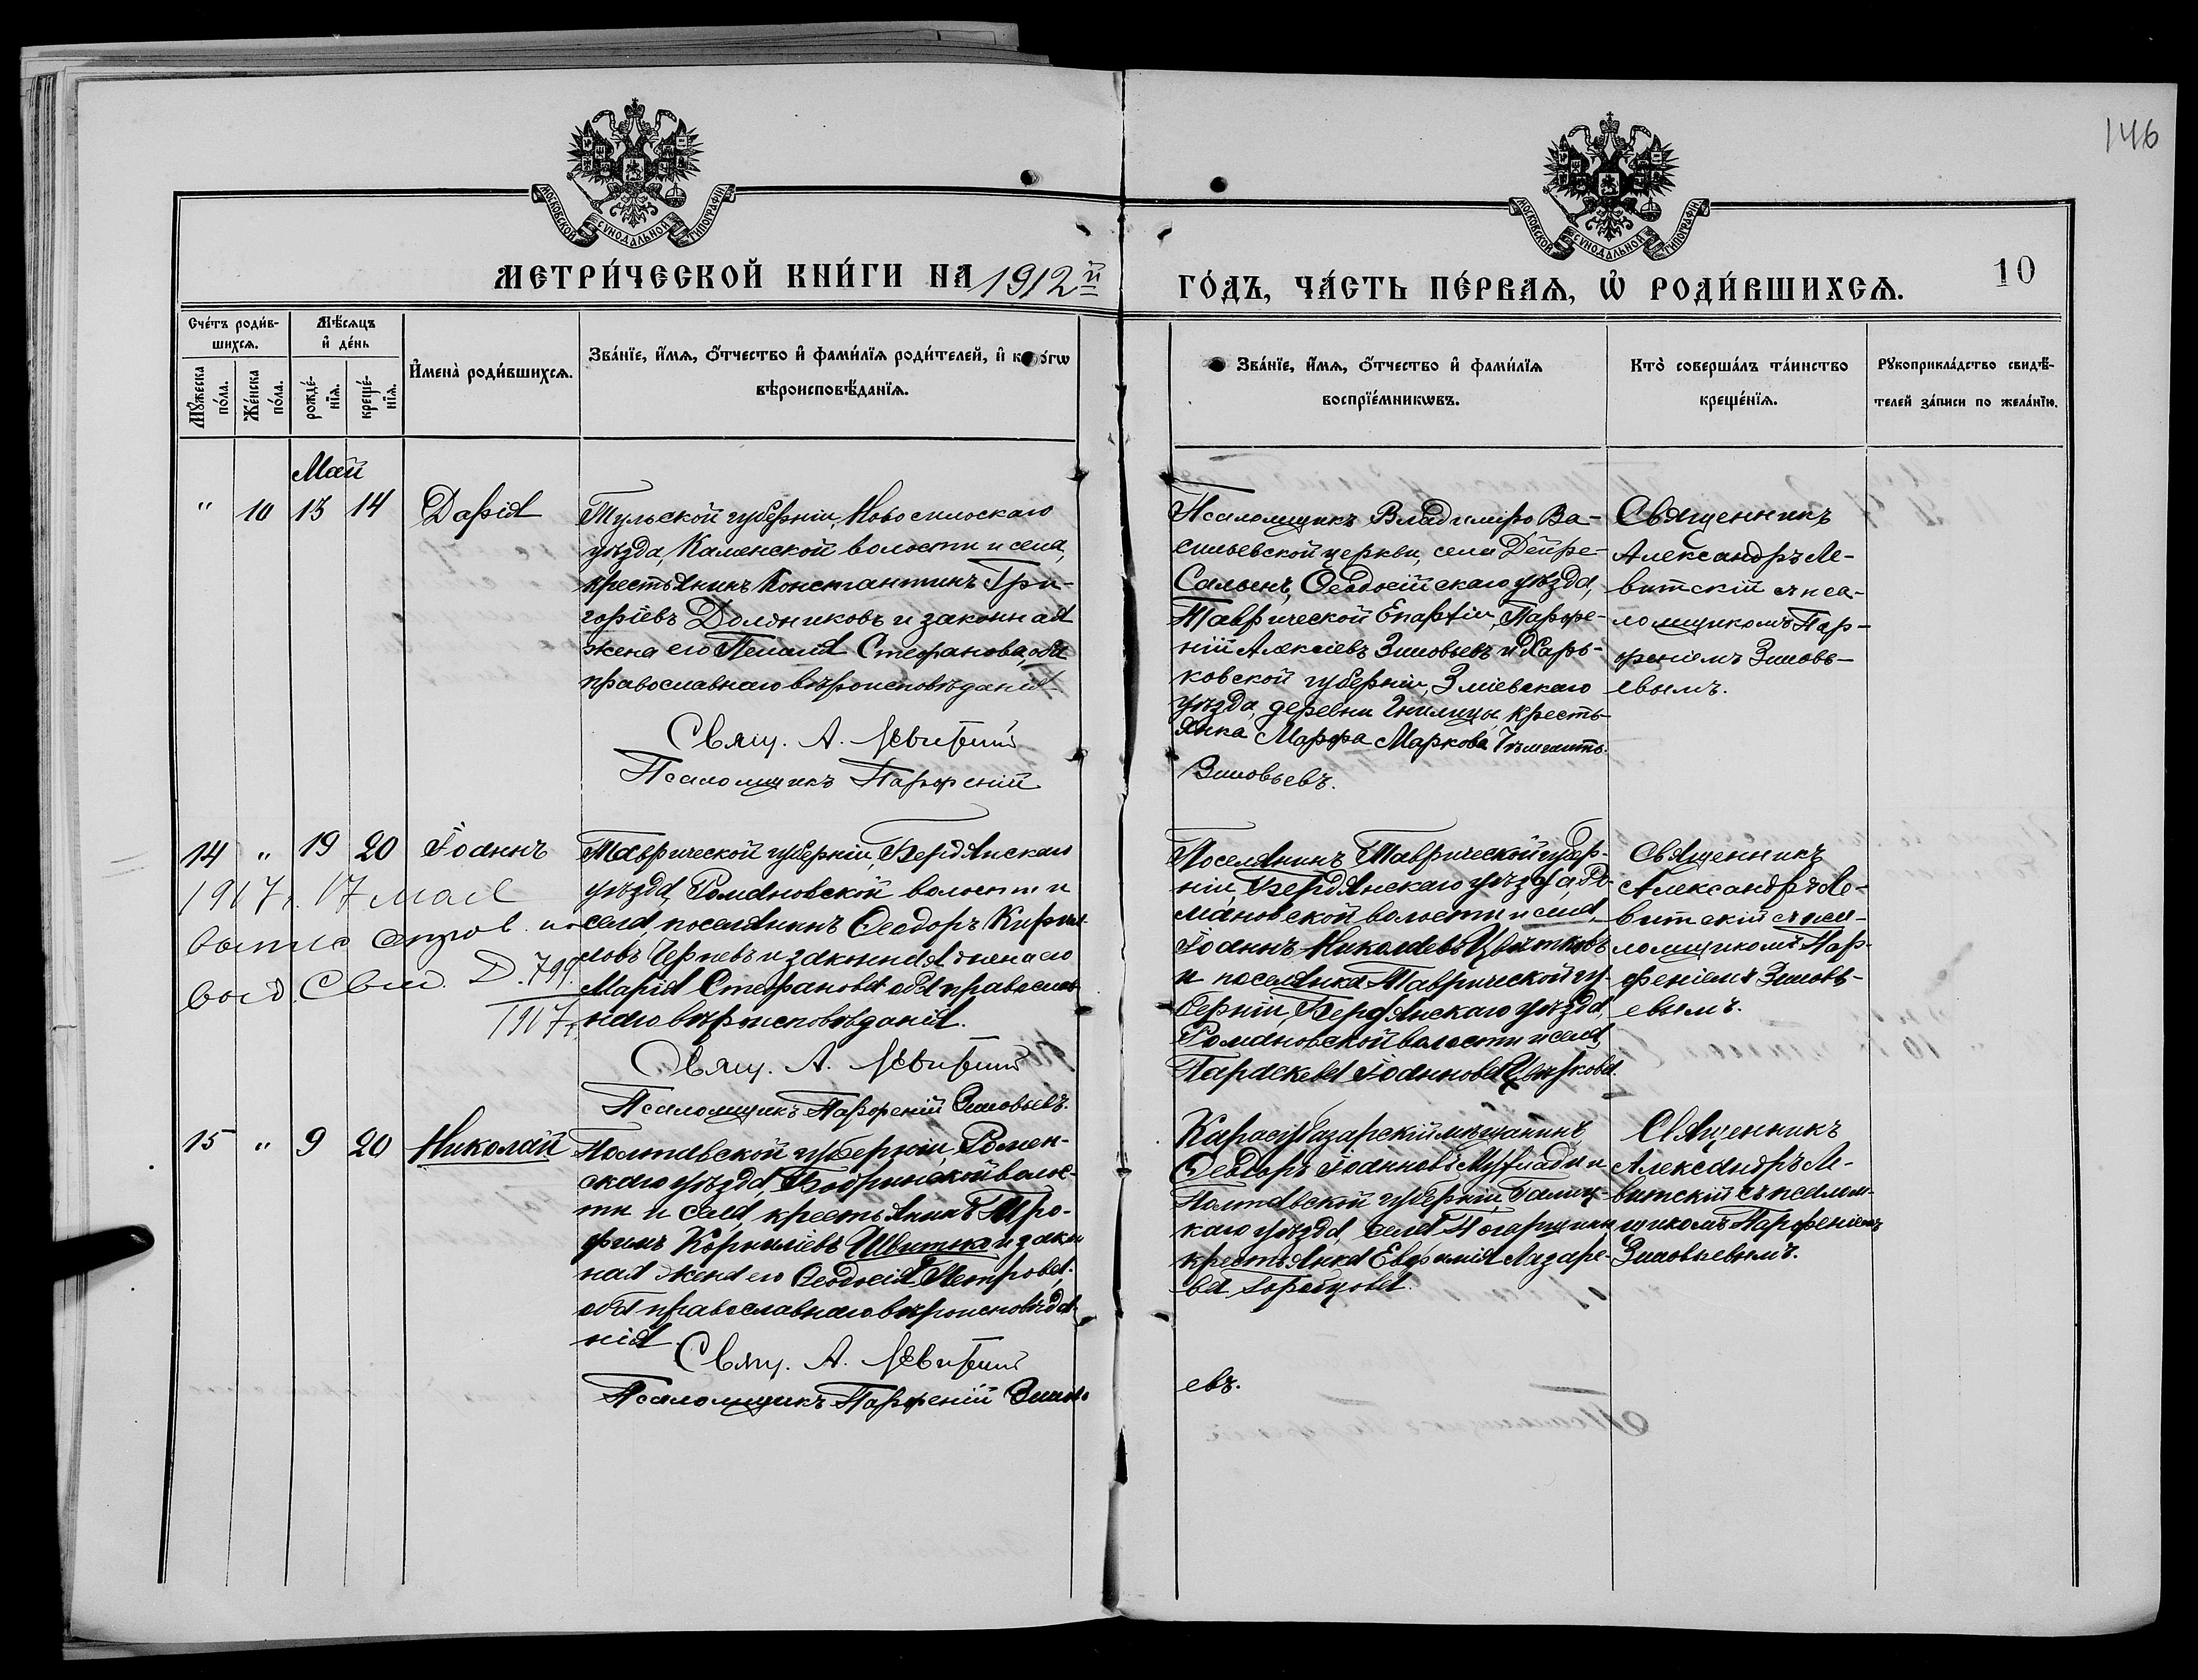 146
МОСКОВСКОЙ СУНОДАЛЬНОЙ ТИПОГРАФІИ
МОСКОВСКОЙ СУНОДАЛЬНОЙ ТИПОГРАФІИ
МЕТРИ́ЧЕСКОЙ КНИ́ГИ НА 1912й
ГО́ДЪ, ЧА́СТЬ ПЕ́РВАѦ, Ѡ҆ РОДИ́ВШИХСѦ.
10
Сче́тъ роди́в-
шихсѧ.
Мѣ́сѧцъ
и҆ де́нь
Мꙋ́жеска
по́ла.
Же́нска
по́ла.
рожде́-
нїѧ.
креще́-
нїѧ.
И҆мена̀ роди́вшихсѧ.
Зва́нїе, и҆́мѧ, ѻ҆́тчество и҆ фами́лїѧ роди́телей, и҆
вѣроисповѣ́данїѧ.
Зва́нїе, и҆́мѧ, ѻ҆́тчество и҆ фами́лїѧ
воспрїе́мникѡвъ.
Кто̀ соверша́лъ та́инство
креще́нїѧ.
Рꙋкоприкла́дство свидѣ́-
телей за́писи по жела́нїю.
Май
" 10 13 14 Дарія
Тульской губерніи, Новосильскаго
уѣзда, Каменской волости и села,
крестьянинъ Константинъ Гри-
горіевъ и законная
жена его Стефанова, оба
православнаго вѣроисповѣданія.
Свящ. А. Левитскій
Псаломщикъ Парфеній
Псаломщикъ Владиміро Ва-
сильевской церкви, села Дейре-
Салынъ, Ѳеодосійскаго уѣзда,
Таврической Епархіи, Парѳе-
ній Алексіевъ Зиновьевъ и Харь-
ковской губерніи, Зміевскаго
уѣзда, деревни Гнилицы, кресть-
янка Марѳа Маркова
Зиновьевъ.
Священникъ
Александръ Ле-
витскій съ пса-
ломщикомъ Пар-
феніемъ Зиновь-
евымъ.
14 " 19 20 Іоаннъ
1917 г. 17 мая
799
1917 г.
Таврической губерніи, Бердянскаго
уѣзда, Романовской волости и
села, поселянинъ Ѳеодоръ Кирил-
ловъ и законная жена его
Марія Стефанова оба православ-
наго вѣроисповѣданія.
Свящ. А. Левитскій
Псаломщикъ Парфеній Зиновьевъ.
Поселянинъ Таврической губер-
ніи, Бердянскаго уѣзда, Ро-
мановской волости и села,
Іоаннъ Николаевъ Цвѣтковъ
и поселянка Таврической гу-
берніи, Бердянскаго уѣзда,
Романовской волости и села,
Параскева Іоаннова Цвѣткова.
Священникъ
Александръ Ле-
витскій съ пса-
ломщикомъ Пар-
феніемъ Зиновь-
евымъ.
15 " 9 20 Николай
Полтавской губерніи, Ромен-
скаго уѣзда, Бобрикской волос-
ти и села, крестьянинъ Тро-
фимъ Корниліевъ Швитка и закон-
ная жена его Ѳеодосія Петрова,
оба православнаго вѣроисповѣда-
нія
Свящ. А. Левитскій
Псаломщикъ Парфеній Зиновь-
Карасубазарскій мѣщанинъ
Ѳеодоръ Іоанновъ и
Полтавской губерніи,
каго уѣзда, села
крестьянка Евфимія Лазаре-
ва
евъ.
Священникъ
Александръ Ле-
витскій съ псалом-
щикомъ Парфеніемъ
Зиновьевымъ.